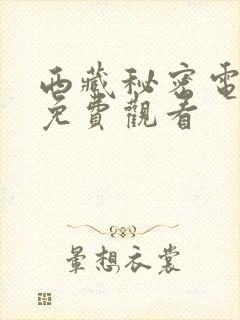 西藏秘密電
免費觀看
暈想衣裳